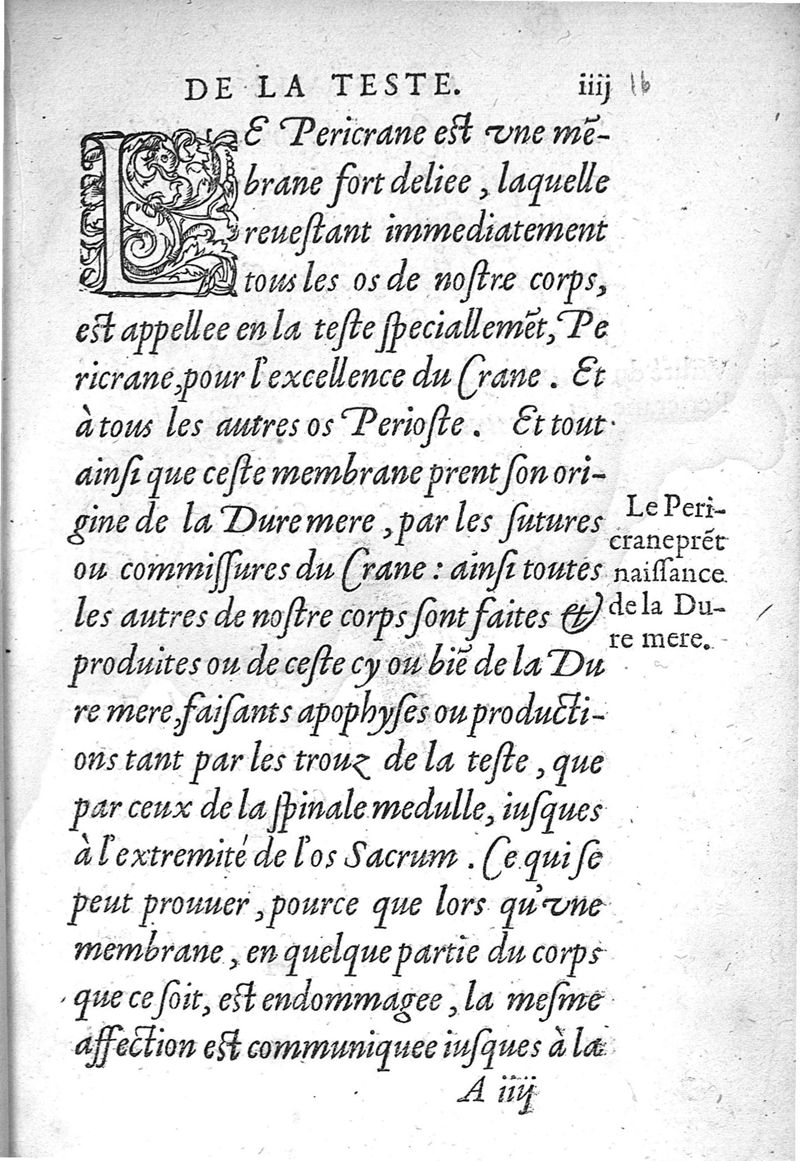 DE LA TESTE. iiij 16
LE Pericrane est vne mẽ-
brane fort deliee, laquelle
reuestant immediatement
tous les os de nostre corps,
est appellee en la teste speciallemẽt, Pe
ricrane, pour l'excellence du Crane. Et
à tous les autres os Perioste. Et tout
ainsi que ceste membrane prent son ori-
gine de la Dure mere, par les sutures
ou commissures du Crane: ainsi toutes
les autres de nostre corps sont faites &
produites ou de ceste cy ou biẽ de la Du
re mere, faisants apophyses ou producti-
ons tant par les trouz de la teste, que
par ceux de la spinale medulle, iusques
à l'extremité de l'os Sacrum. Ce qui se
peut prouuer, pource que lors qu'vne
membrane, en quelque partie du corps
que ce soit, est endommagee, la mesme
affection est communiquee iusques à la
A iiij
Le Peri-
crane prẽt
naissance
de la Du-
re mere.